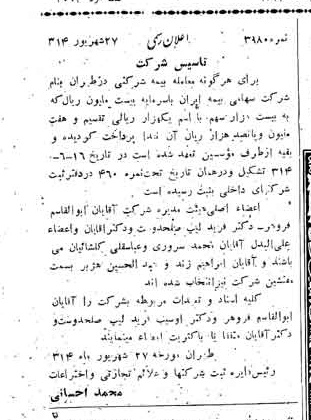 نمره ۳۹۸۰ اعلان رسمی ۲۷ شهریور ۳۱۴
تاسیس شرکت
برای هرگونه معامله بیمه شرکتی در طهران بنام
شرکت سهامی بیمه ایران باسرمایه بیست ملیون ریال که
به بیست هزار سهم با اسم یکهزار ریالی تقسیم و هفت
ملیون و پانصد هزار ریال آن نقدا پرداخت گردیده و
بقیه از طرف مؤسسین تعهد شده است در تاریخ ۱۶-۶-
۳۱۴ تشکیل و در همان تاریخ تحت نمره ۴۶۰ در دفتر ثبت
شرکتهای داخلی بثبت رسیده است
اعضاء اصلی هیئت مدیره شرکت آقایان ابوالقاسم
فروهر - دکتر فرید لیپ صفحدوست و دکتر آقایان و اعضاء
علی البدل آقایان محمد سروری و عباسقلی گلشائیان می
باشند و آقایان ابراهیم زند و عبدالحسین هژیر بسمت
مفتشین شرکت نیز انتخاب شده اند
کلیه اسناد و تعهدات مربوطه بشرکت را آقایان
ابوالقاسم فروهر و دکتر فرید لیپ صلحدوست و
دکتر آقایان متفقا یا باکثریت امضاء مینمایند
طهران مورخه ۲۷ شهریور ماه ۳۱۴
رئیس دایره ثبت شرکتها و علائم تجارتی و اختراعات
محمد احسانی